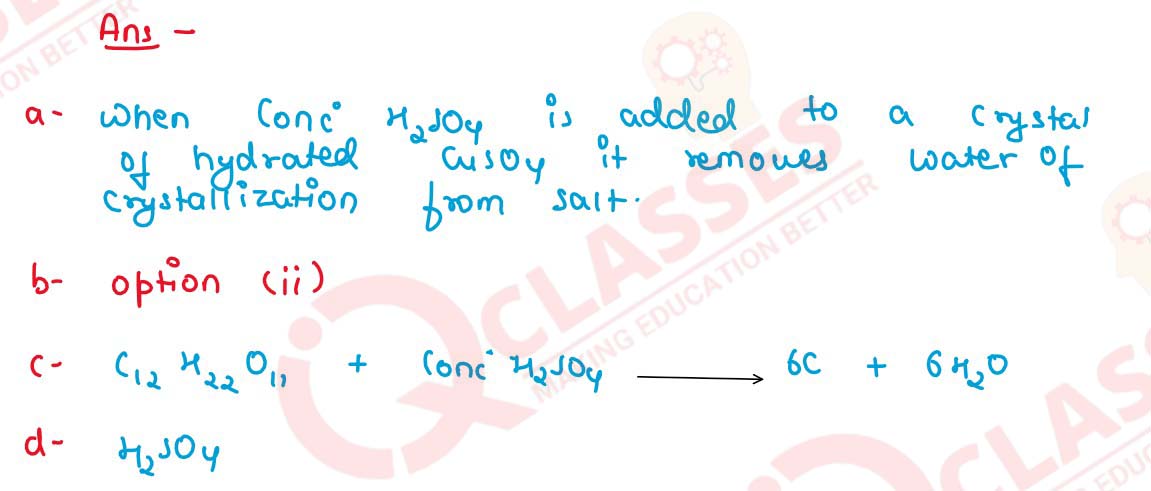 Ans -
a- when Conc H₂SO₄ is added to a crystal
of hydrated CuSO₄ it removes water of
crystallization from salt.
b- option (ii)
c- C₁₂ H₂₂ O₁₁ + Conc H₂SO₄ ⟶ 6C + 6H₂O
d- H₂SO₄
CLASSES
MAKING EDUCATION BETTER